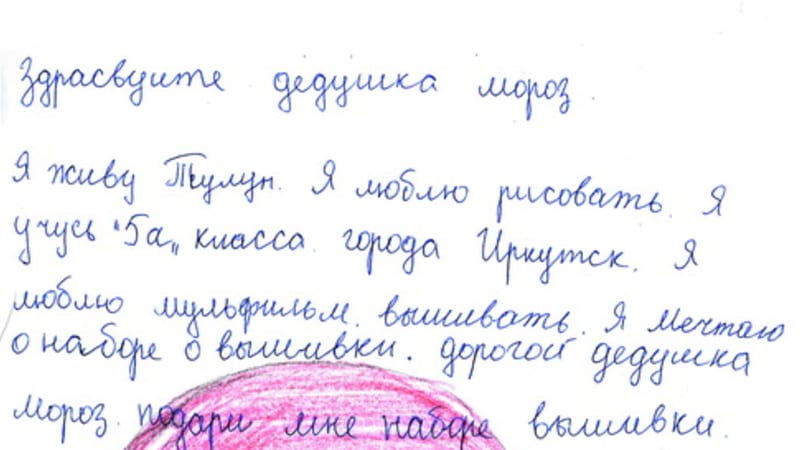 Здрасвуите дедушка мороз.
Я живу Тулун. Я люблю рисовать. Я
учусь "5а„ класса. города Иркутск. Я
люблю мульфильм. вышивать. Я мечтаю
о наборе о вышивки. дорогой дедушка
мороз. подари мне наборе вышивки.